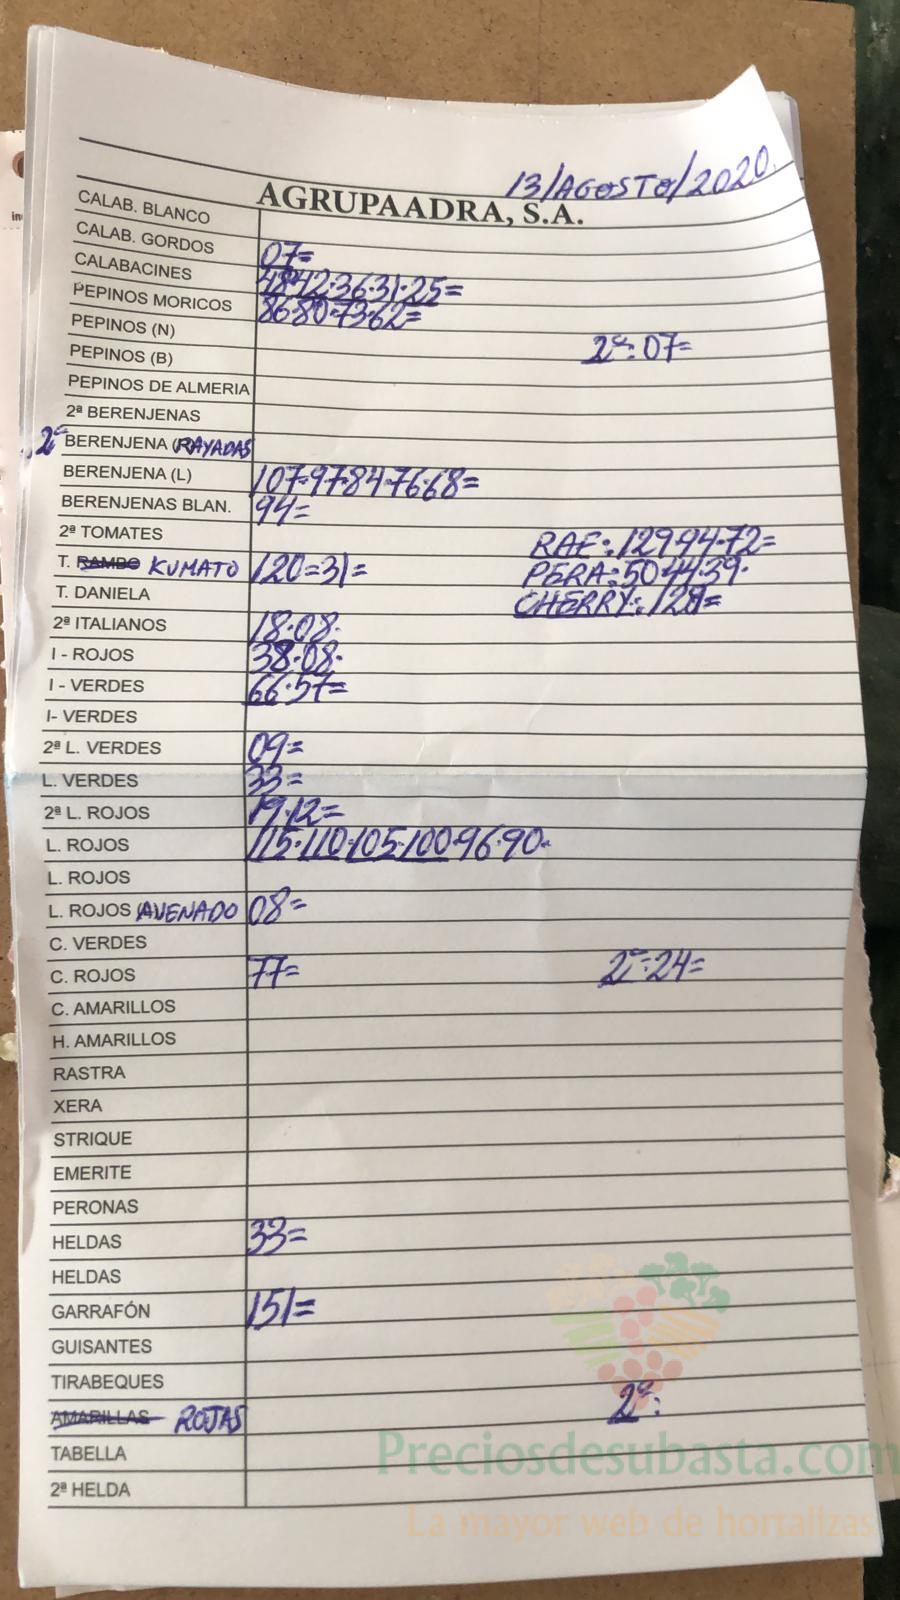 13/AGOSTO/2020.
AGRUPAADRA, S.A.
CALAB. BLANCO
CALAB. GORDOS 07=
CALABACINES 48·42·36·31·25=
PEPINOS MORICOS 86·80·73·62=
PEPINOS (N) 2ª: 07=
PEPINOS (B)
PEPINOS DE ALMERIA
2ª BERENJENAS
2ª BERENJENA (RAYADAS
BERENJENA (L) 107·97·84·76·68=
BERENJENAS BLAN. 94=
2ª TOMATES RAE: 129·94·72=
T. RAMBO KUMATO 120=31= PERA: 50·44·39·
T. DANIELA CHERRY: 128=
2ª ITALIANOS 18·08·
I - ROJOS 38·08·
I - VERDES 66·57=
I- VERDES
2ª L. VERDES 09=
L. VERDES 33=
2ª L. ROJOS 19·12=
L. ROJOS 115·110·105·100·96·90·
L. ROJOS
L. ROJOS AVENADO 08=
C. VERDES
C. ROJOS 77= 2ª: 24=
C. AMARILLOS
H. AMARILLOS
RASTRA
XERA
STRIQUE
EMERITE
PERONAS
HELDAS 33=
HELDAS
GARRAFÓN 151=
GUISANTES
TIRABEQUES
AMARILLAS ROJAS 2ª:
TABELLA
2ª HELDA
Preciosdesubasta.com
La mayor web de hortalizas